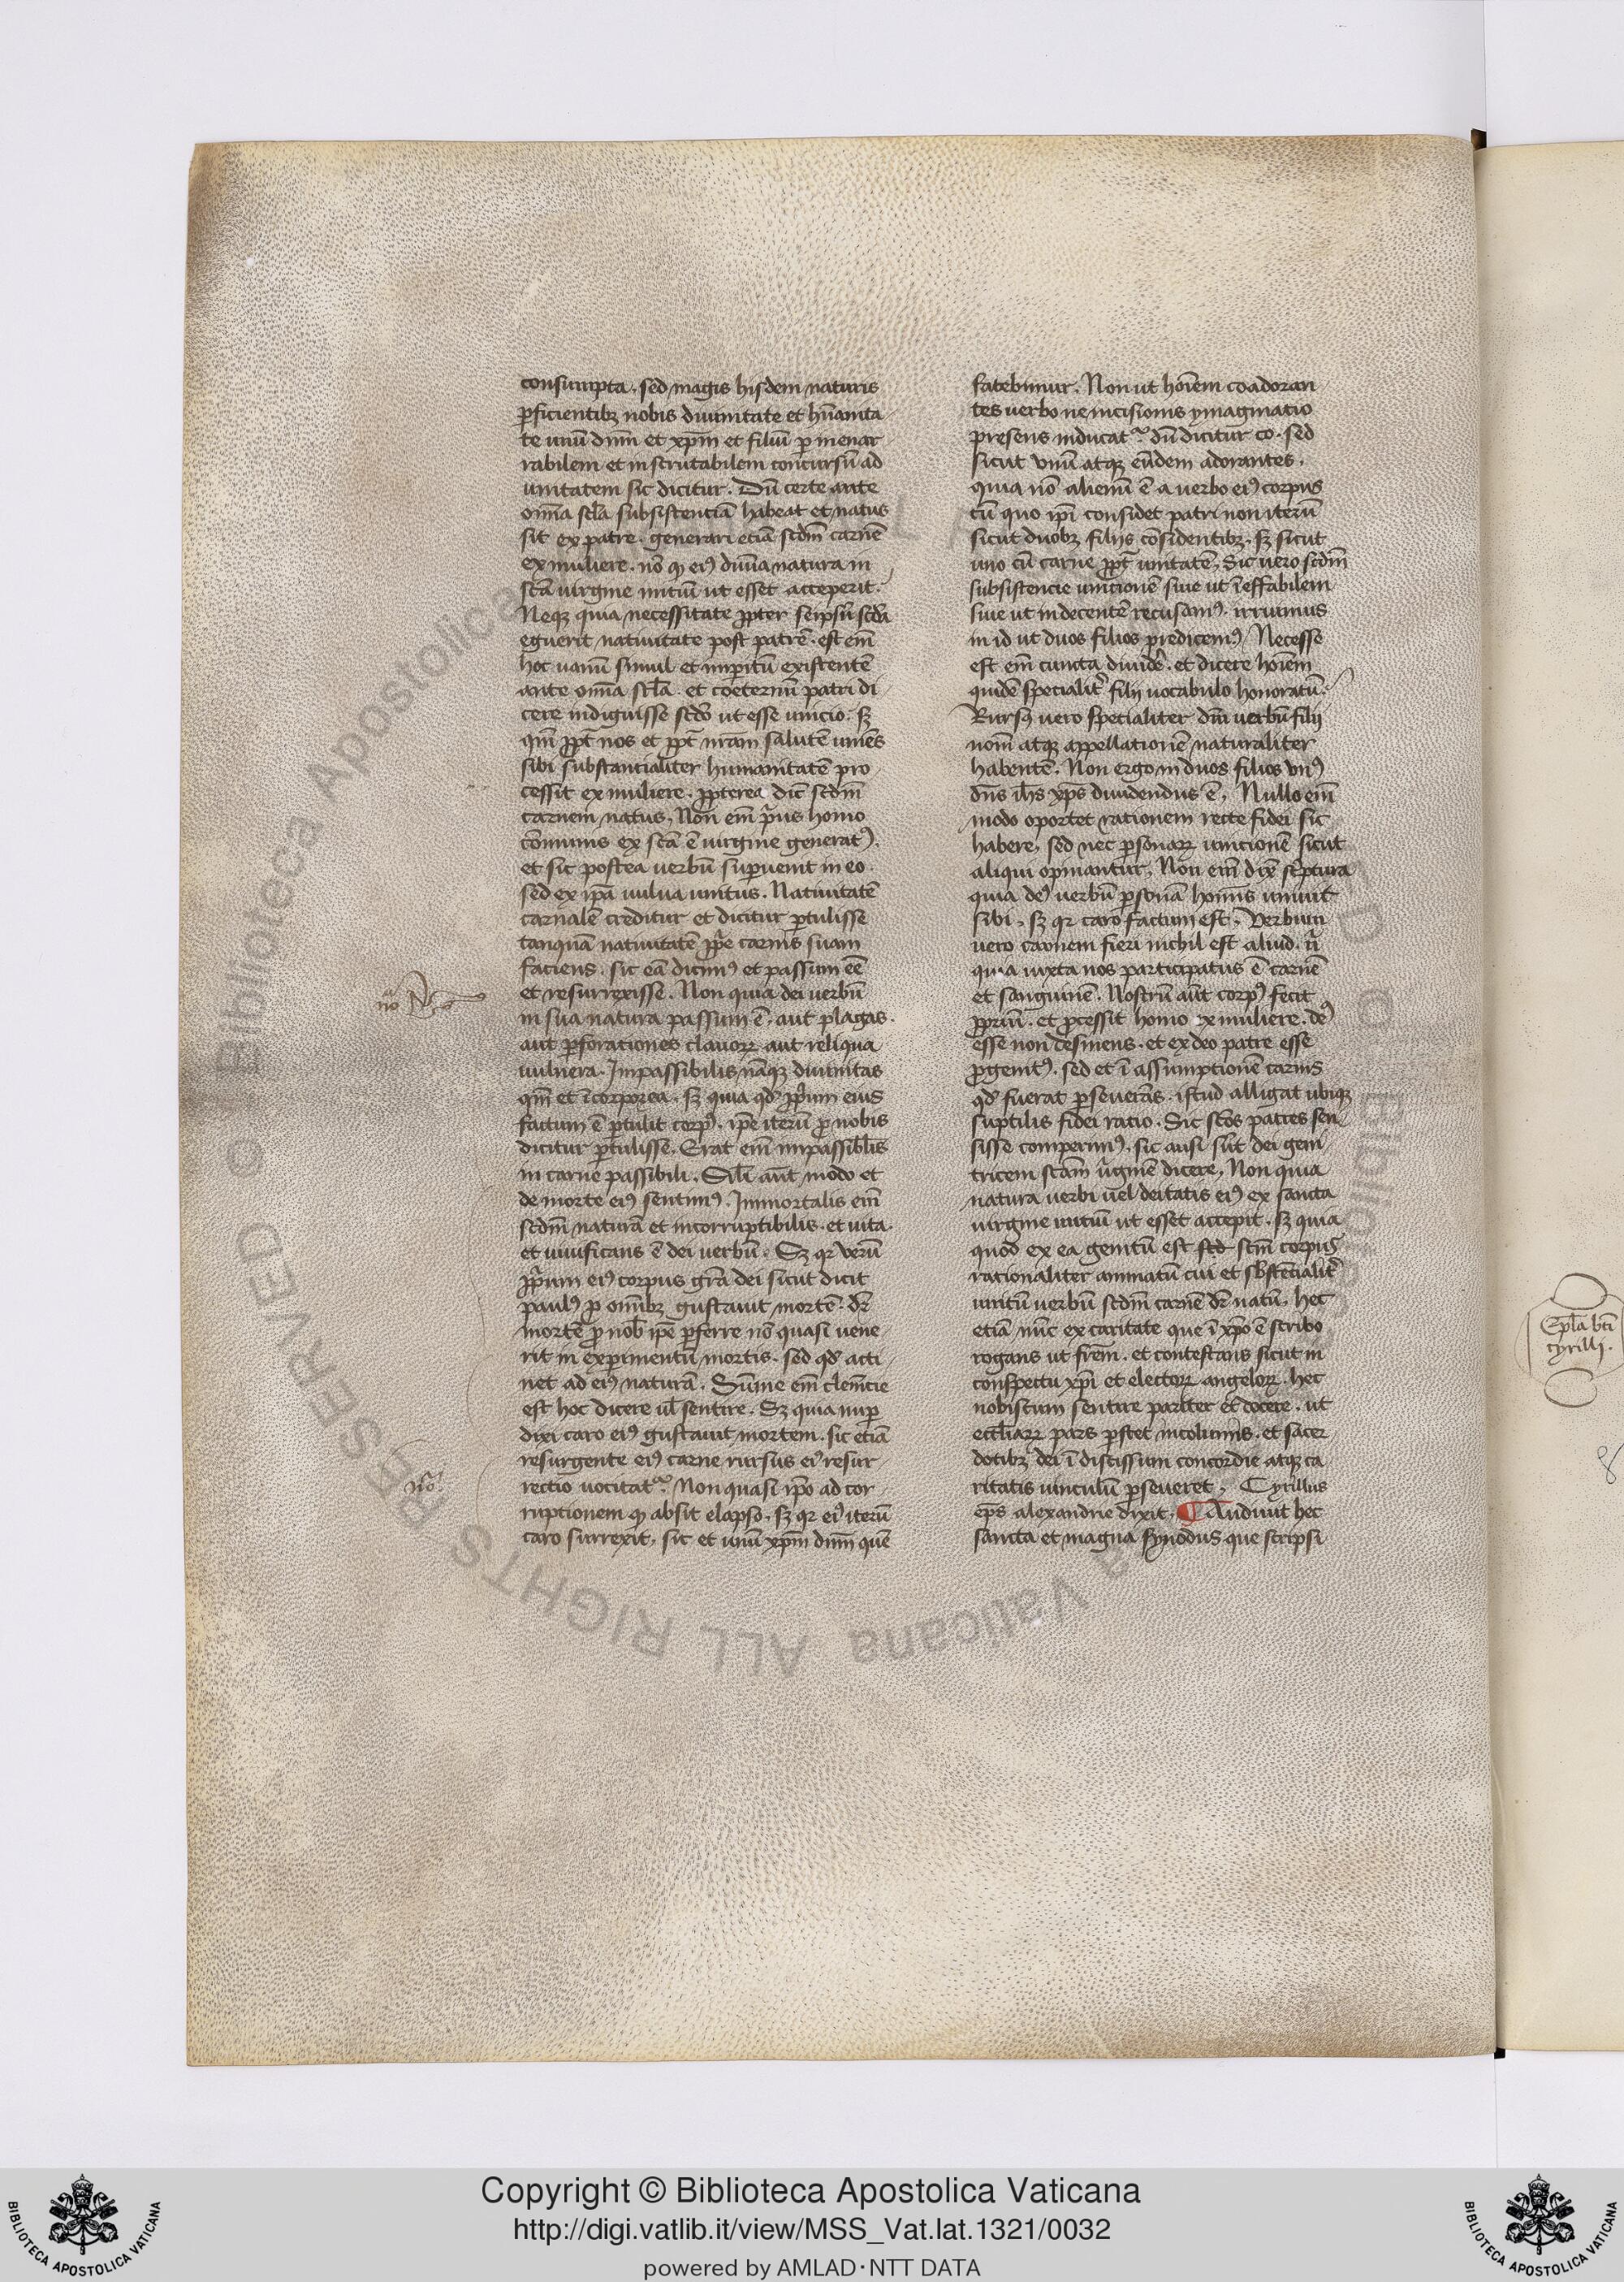 consumpta. sed magis hisdem naturis
ꝑficientibꝫ nobis diuinitate et hūanita
te unū dnm̄ et xp̄m et filiū ꝑ inenar
rabilem et inscrutabilem concursū ad
unitatem sic dicitur. Dū certe ante
om̄ia scl̄a subsistenciā habeat et natus
sit ex patre. generari etiā scdm̄ carnē
ex muliere. nō ꝙ eiꝰ diuīa natura in
scā uirgine initiū ut esset acceperit.
Neqꝫ quia necessitate ꝓpter seipsū scd̄a
eguerit natiuitate post patrē. est em̄
hoc uanū simul et imperitū existentē
ante om̄ia scl̄a. et coeternū patri di
cere indiguisse scd̄o ut esse inicio. sꝫ
qm̄ ꝓpt̄ nos et ꝓpt̄ nr̄am salutē uniēs
sibi substantialiter humanitatē pro
cessit ex muliere. ꝓpterea dic̄ scdm̄
carnem natus, Non em̄ pͥus homo
cōmunis ex scā ē uirgine generatꝰ.
et sic postea uerbū suꝑuenit in eo.
sed ex ip̄a uulua unitus. Natiuitatē
carnalē creditur et dicitur ꝑtulisse
tanquā natiuitatē ꝓpͥe carnis suam
faciens. sic eā dicimꝰ et passum ēē
et resurrexisse. Non quia dei uerbū
in sua natura passum ē. aut plagas.
aut ꝑforationes clauoꝝ aut reliqua
uulnera. Impassibilis nāqꝫ diuinitas
qm̄ et īcorporea. sꝫ quia qd̄ ꝓpͥum eius
factum ē ꝑtulit corpꝰ. ip̄e iterū ꝓ nobis
dicitur ꝑtulisse. Erat em̄ impassibl̄is
in carne passibili. Sil̄i aūt modo et
de morte eiꝰ sentimꝰ. Immortalis em̄
scdm̄ naturā et incorruptibilis. et uita.
et uiuificans ē dei uerbū. Sꝫ qr uerū
ꝓpͥum eiꝰ corpus grā dei sicut dicit
paulꝰ ꝓ omībꝫ gustauit mortē. dr̄
mortē ꝓ nob̄ ip̄e ꝑferre nō quasi uene
rit in experimentū mortis. sed qd̄ acti
net ad eiꝰ naturā. Sūme em̄ clem̄cie
est hoc dicere ul̄ sentire. Sꝫ quia nuꝑ
dixi caro eiꝰ gustauit mortem. sic etiā
resurgente eiꝰ carne rursus eiꝰ resur
rectio uocitat᷑. Non quasi ip̄o ad cor
ruptionem ꝙ absit elapso. sꝫ qr eiꝰ iterū
caro surrexit, sic et unū xp̄m dnm̄ quē
fatebimur. Non ut hoīem coadoran
tes uerbo ne incisionis ymaginatio
presens inducat᷑ dū dicitur co. sed
sicut vnū atqꝫ eūdem adorantes.
quia nō alienū ē a uerbo eiꝰ corpus
cū quo ip̄i considet patri non iterū
sicut duobꝫ filijs cōsidentibꝫ. sꝫ sicut
uno cū carne ꝓpt̄ unitatē. Sic uero scdm̄
subsistencie unicionē siue ut īeffabilem
siue ut indecentē recusamꝰ. irruimus
in id ut duos filios predicemꝰ. Necesse
est em̄ cuncta diuider̄. et dicere hoīem
quidē specialit᷑ filij uocabulo honoratū.
Rursꝰ uero specialiter dei uerbū filij
nom̄ atqꝫ appellationē naturaliter
habentē. Non ergo in duos filios vnꝰ
dn̄s ih̄s xp̄s diuidendus ē, Nullo em̄
modo oportet rationem recte fidei sic
habere, sed nec ꝑsonaꝝ unicionē sicut
aliqui opinantur, Non em̄ dix̄ scriptura
quia deꝰ uerbū ꝑsonā hoīnis uniuit
sibi. sꝫ qr caro factum est, Verbum
uero carnem fieri nichil est aliud. n̄
quia iuxta nos participatus ē carnē
et sanguinē. Nostrū aūt corpꝰ fecit
ꝓpriū. et ꝓcessit homo ex muliere. deꝰ
esse non desinens. et ex deo patre esse
ꝓgenitꝰ. sed et ī assumptionē carnis
qd̄ fuerat ꝑseuerās. istud alligat ubiqꝫ
suptilis fidei ratio. Sic scōs patres sen
sisse comperimꝰ. sic ausi sūt dei geni
tricem scam̄ uͥginē dicere, Non quia
natura uerbi uel deitatis eiꝰ ex sancta
uirgine initiū ut esset accepit. sꝫ quia
quod ex ea genitū est scd̄ scm̄ corpus
rationaliter animatū cui et sbstēcialit᷑
unitū uerbū scdm̄ carnē dr̄ natū, hec
etiā nūc ex caritate que ī xp̄o ē scribo
rogans ut frēm. et contestans sicut in
conspectu xp̄i et electoꝝ angeloꝝ. hec
nobiscum sentire pariter et docere. ut
eccl̄iaꝝ pars ꝑstet incolumis. et sacer
dotibꝫ dei ī discissum concordie atqꝫ ca
ritatis uinculū ꝑseueret, Cyrillus
ep̄s alexandrie dixit, ¶ Audiuit hec
sancta et magna synodus que scripsi
noᵃ
noᵃ
Epl̄a bt̄i
cyrilli.
Copyright © Biblioteca Apostolica Vaticana
http://digi.vatlib.it/view/MSS_Vat.lat.1321/0032
powered by AMLAD·NTT DATA
BIBLIOTECA APOSTOLICA VATICANA
BIBLIOTECA APOSTOLICA VATICANA